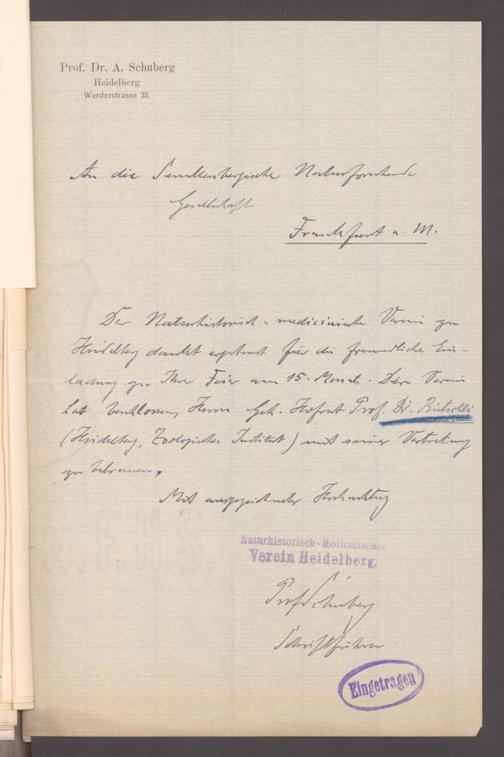 Prof. Dr. A. Schuberg
Heidelberg
Werderstrasse 32.
An die Senckenbergische Naturforschende
Gesellschaft
Frankfurt a. M.
Der Naturhistorisch-medicinische Verein zu
Heidelberg dankt ergebenst für die freundliche Ein-
ladung zu Ihrer Feier am 15. Der Verein
hat beschlossen, Herrn Geh. Hofrat Prof. Dr. Bütschli
(Heidelberg, Zoologisches Institut) mit seiner Vertretung
zu betrauen.
Mit ausgezeichneter Hochachtung
Naturhistorisch-Medicinischer
Verein Heidelberg.
Prof Schuberg
Schriftführer
Eingetragen